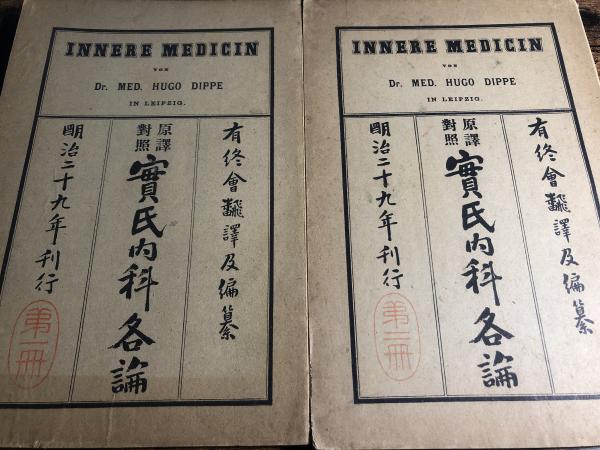 INNERE MEDICIN
VON
Dr. MED. HUGO DIPPE
IN LEIPZIG.
有終會飜譯及編纂
原譯
對照
實氏内科各論
明治二十九年刊行
第一冊
INNERE MEDICIN
VON
Dr. MED. HUGO DIPPE
IN LEIPZIG.
有終會飜譯及編纂
原譯
對照
實氏内科各論
明治二十九年刊行
第二冊